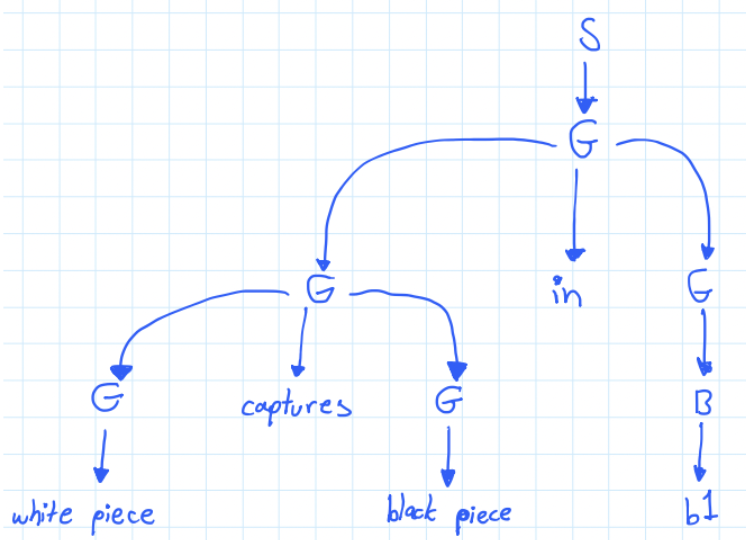 S
G
G in G
G captures G B
white piece black piece b1